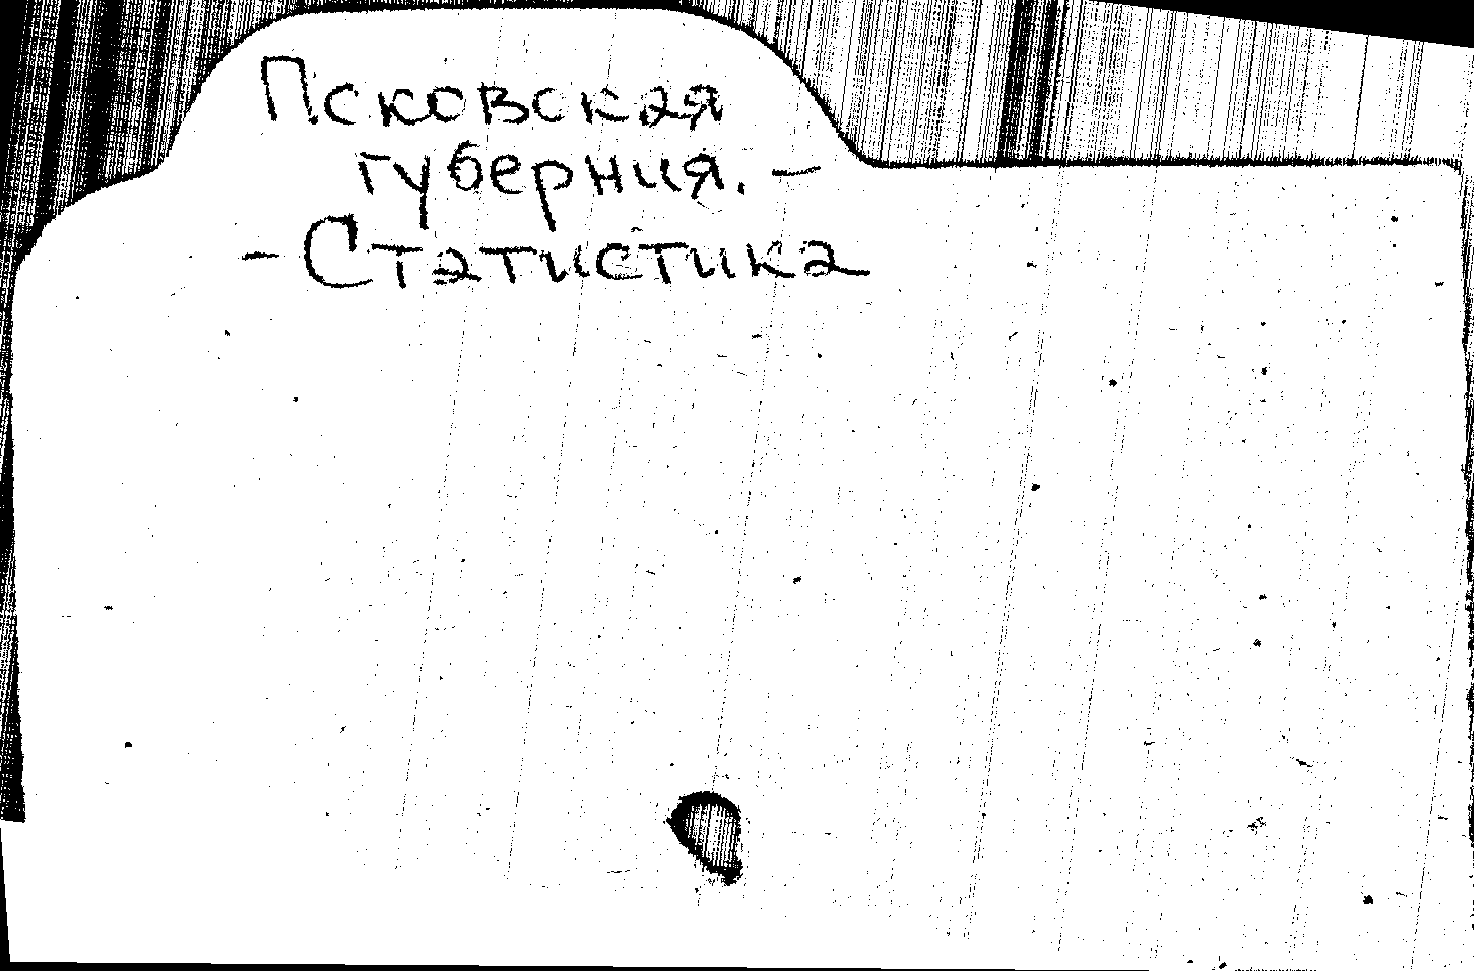 Псковская
губерния. –
– Статистика